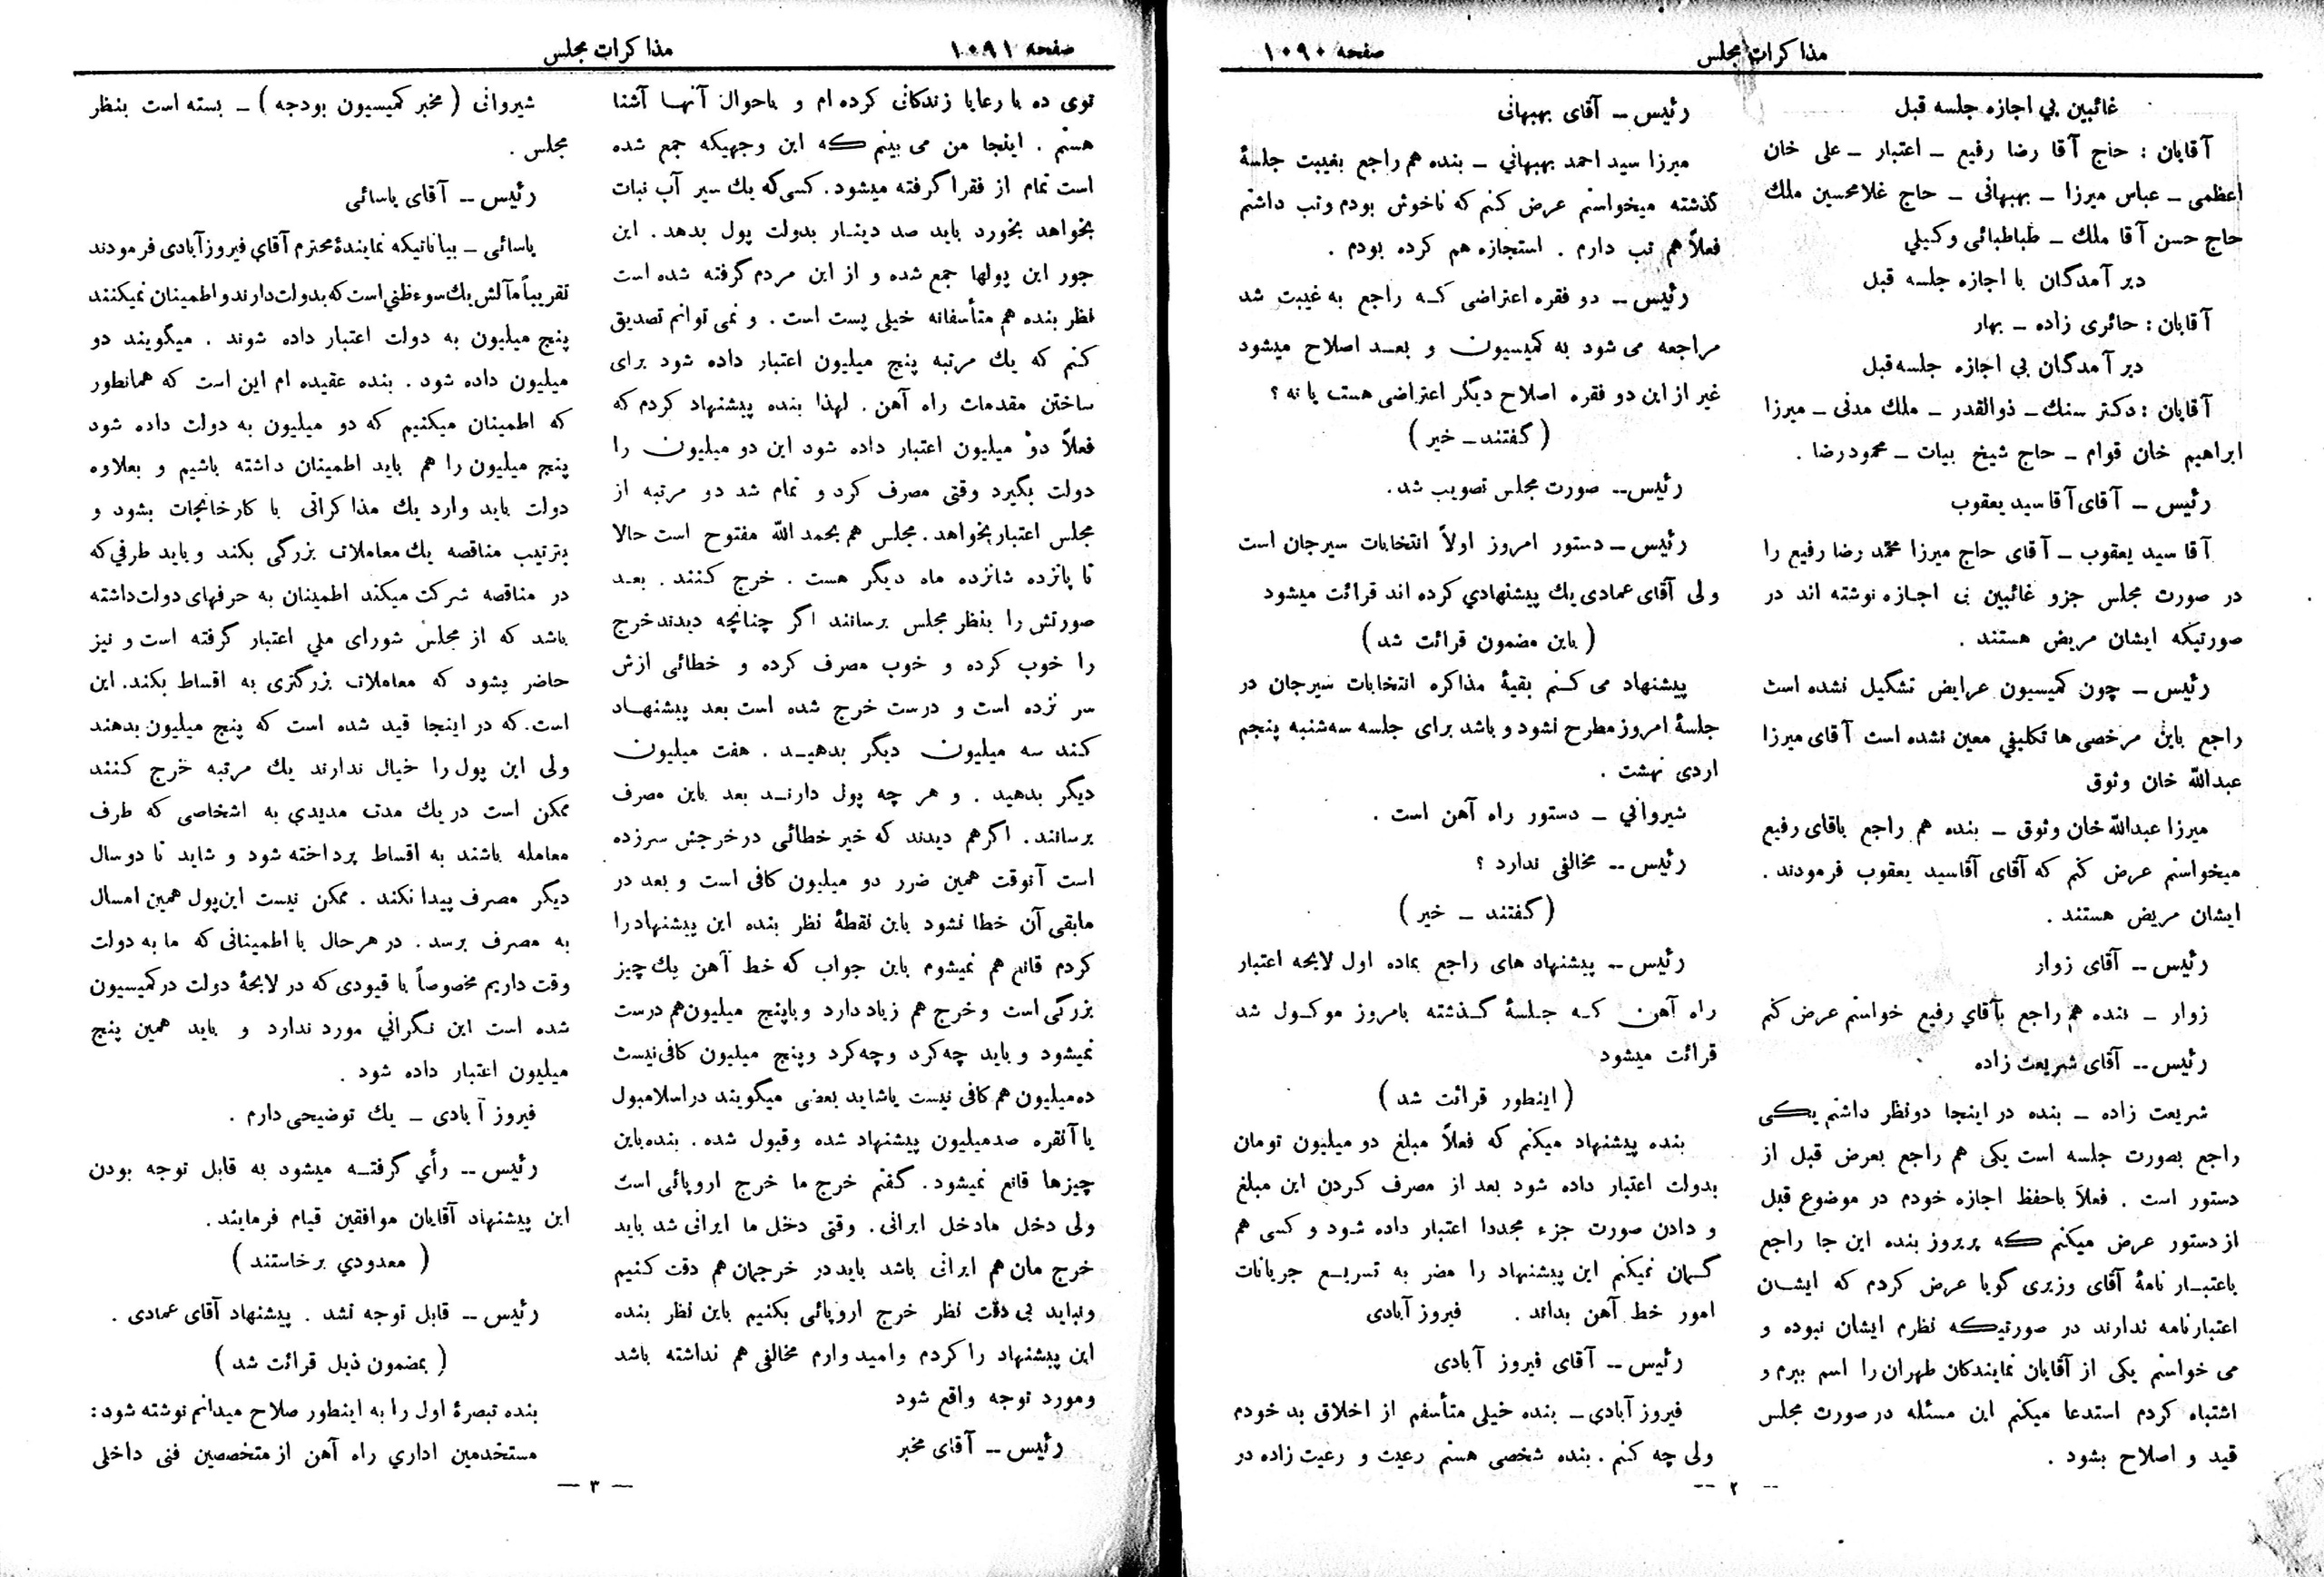 مذاکرات مجلس
صفحه ۱۰۹۰
غائبین بی اجازه جلسه قبل
آقایان : حاج آقا رضا رفیع ــ اعتبار ــ علی خان
اعظمی ــ عباس میرزا ــ بهبهانی ــ حاج غلامحسین ملك
حاج حسن آقا ملك ــ طباطبائی وکیلی
دیر آمدگان با اجازه جلسه قبل
آقایان : حائری زاده ــ بهار
دیر آمدگان بی اجازه جلسه قبل
آقایان : دکتر سنك ــ ذوالقدر ــ ملك مدنی ــ میرزا
ابراهیم خان قوام ــ حاج شیخ بیات ــ محمود رضا .
رئیس ــ آقای آقا سید یعقوب
آقا سید یعقوب ــ آقای حاج میرزا محمّد رضا رفیع را
در صورت مجلس جزو غائبین بی اجازه نوشته اند در
صورتیکه ایشان مریض هستند .
رئیس ــ چون کمیسیون عرایض تشکیل نشده است
راجع باین مرخصی ها تکلیفی معین نشده است آقای میرزا
عبدالله خان وثوق
میرزا عبدالله خان وثوق ــ بنده هم راجع باقای رفیع
میخواستم عرض کنم که آقای آقاسید یعقوب فرمودند .
ایشان مریض هستند .
رئیس ــ آقای زوار
زوار ــ بنده هم راجع بآقای رفیع خواستم عرض کنم
رئیس ــ آقای شریعت زاده
شریعت زاده ــ بنده در اینجا دونظر داشتم یکی
راجع بصورت جلسه است یکی هم راجع بعرض قبل از
دستور است . فعلاً باحفظ اجازه خودم در موضوع قبل
از دستور عرض میکنم که پریروز بنده این جا راجع
باعتبار نامهٔ آقای وزیری گویا عرض کردم که ایشان
اعتبارنامه ندارند در صورتیکه نظرم ایشان نبوده و
می خواستم یکی از آقایان نمایندکان طهران را اسم ببرم و
اشتباه کردم استدعا میکنم این مسئله در صورت مجلس
قید و اصلاح بشود .
رئیس ــ آقای بهبهانی
میرزا سید احمد بهبهانی ــ بنده هم راجع بغیبت جلسهٔ
گذشته میخواستم عرض کنم که ناخوش بودم و تب داشتم
فعلاً هم تب دارم . استجازه هم کرده بودم .
رئیس ــ دو فقره اعتراضی که راجع به غیبت شد
مراجعه می شود به کمیسیون و بعد اصلاح میشود
غیر از این دو فقره اصلاح دیگر اعتراضی هست یا نه ؟
( گفتند ــ خیر )
رئیس ــ صورت مجلس تصویب شد .
رئیس ــ دستور امروز اولاً انتخابات سیرجان است
ولی آقای عمادی یك پیشنهادی کرده اند قرائت میشود
( باین مضمون قرائت شد )
پیشنهاد می کنم بقیهٔ مذاکره انتخابات سیرجان در
جلسهٔ امروز مطرح نشود و باشد برای جلسه سه‌شنبه پنجم
اردی بهشت .
شیروانی ــ دستور راه آهن است .
رئیس ــ مخالفی ندارد ؟
( گفتند ــ خیر )
رئیس ــ پیشنهاد های راجع بماده اول لایحه اعتبار
راه آهن که جلسهٔ گذشته بامروز موکول شد
قرائت میشود
( اینطور قرائت شد )
بنده پیشنهاد میکنم که فعلاً مبلغ دو میلیون تومان
بدولت اعتبار داده شود بعد از مصرف کردن این مبلغ
و دادن صورت جزء مجددا اعتبار داده شود و کسی هم
گمان نمیکنم این پیشنهاد را مضر به تسریع جریانات
امور خط آهن بداند . فیروز آبادی
رئیس ــ آقای فیروز آبادی
فیروز آبادی ــ بنده خیلی متأسفم از اخلاق بد خودم
ولی چه کنم . بنده شخصی هستم رعیت و رعیت زاده در
ــ ۲ ــ
صفحه ۱۰۹۱
مذاکرات مجلس
توی ده با رعایا زندکانی کرده ام و باحوال آنها آشنا
هستم . اینجا من می بینم که این وجهیکه جمع شده
است تمام از فقرا گرفته میشود . کسی که یك سیر آب نبات
بخواهد بخورد باید صد دینار بدولت پول بدهد . این
جور این پولها جمع شده و از این مردم گرفته شده است
نظر بنده هم متأسفانه خیلی پست است . و نمی توانم تصدیق
کنم که یك مرتبه پنج میلیون اعتبار داده شود برای
ساختن مقدمات راه آهن . لهذا بنده پیشنهاد کردم که
فعلاً دو میلیون اعتبار داده شود این دو میلیون را
دولت بگیرد وقتی مصرف کرد و تمام شد دو مرتبه از
مجلس اعتبار بخواهد . مجلس هم بحمد الله مفتوح است حالا
تا پانزده شانزده ماه دیگر هست . خرج کنند . بعد
صورتش را بنظر مجلس برسانند اگر چنانچه دیدند خرج
را خوب کرده و خوب مصرف کرده و خطائی ازش
سر نزده است و درست خرج شده است بعد پیشنهاد
کنند سه میلیون دیگر بدهید . هفت میلیون
دیگر بدهید . و هر چه پول دارند بعد باین مصرف
برسانند . اگرهم دیدند که خیر خطائی در خرجش سرزده
است آنوقت همین ضرر دو میلیون کافی است و بعد در
مابقی آن خطا نشود باین نقطهٔ نظر بنده این پیشنهاد را
کردم قانع هم نمیشوم باین جواب که خط آهن یك چیز
بزرگی است و خرج هم زیاد دارد و باپنج میلیون هم درست
نمیشود و باید چه کرد و چه کرد و پنج میلیون کافی نیست
ده میلیون هم کافی نیست یا شاید بعضی میگویند در اسلامبول
یا آنقره صد میلیون پیشنهاد شده و قبول شده . بنده باین
چیزها قانع نمیشود . گفتم خرج ما خرج اروپائی است
ولی دخل مادخل ایرانی . وقتی دخل ما ایرانی شد باید
خرج مان هم ایرانی باشد باید در خرجمان هم دقت کنیم
و نباید بی دقت نظر خرج اروپائی بکنیم باین نظر بنده
این پیشنهاد را کردم و امید وارم مخالفی هم نداشته باشد
و مورد توجه واقع شود
رئیس ــ آقای مخبر
شیروانی ( مخبر کمیسیون بودجه ) ــ بسته است بنظر
مجلس .
رئیس ــ آقای یاسائی
یاسائی ــ بیاناتیکه نمایندهٔ محترم آقای فیروزآبادی فرمودند
تقریباً مآلش یك سوء ظنی است که بدولت دارند و اطمینان نمیکنند
پنج میلیون به دولت اعتبار داده شوند . میگویند دو
میلیون داده شود . بنده عقیده ام این است که همانطور
که اطمینان میکنیم که دو میلیون به دولت داده شود
پنج میلیون را هم باید اطمینان داشته باشیم و بعلاوه
دولت باید وارد یك مذاکراتی با کارخانجات بشود و
بترتیب مناقصه یك معاملات بزرگی بکند و باید طرفی که
در مناقصه شرکت میکند اطمینان به حرفهای دولت داشته
باشد که از مجلس شورای ملی اعتبار گرفته است و نیز
حاضر بشود که معاملات بزرگتری به اقساط بکند. این
است. که در اینجا قید شده است که پنج میلیون بدهند
ولی این پول را خیال ندارند یك مرتبه خرج کنند
ممکن است در یك مدت مدیدی به اشخاصی که طرف
معامله باشند به اقساط پرداخته شود و شاید تا دو سال
دیگر مصرف پیدا نکند . ممکن نیست این پول همین امسال
به مصرف برسد . در هر حال با اطمینانی که ما به دولت
وقت داریم مخصوصاً با قیودی که در لایحهٔ دولت در کمیسیون
شده است این نگرانی مورد ندارد و باید همین پنج
میلیون اعتبار داده شود .
فیروز آبادی ــ یك توضیحی دارم .
رئیس ــ رأی گرفته میشود به قابل توجه بودن
این پیشنهاد آقایان موافقین قیام فرمایند .
( معدودی برخاستند )
رئیس ــ قابل توجه نشد . پیشنهاد آقای عمادی .
( بمضمون ذیل قرائت شد )
بنده تبصرهٔ اول را به اینطور صلاح میدانم نوشته شود :
مستخدمین اداری راه آهن از متخصصین فنی داخلی
ــ ۳ ــ